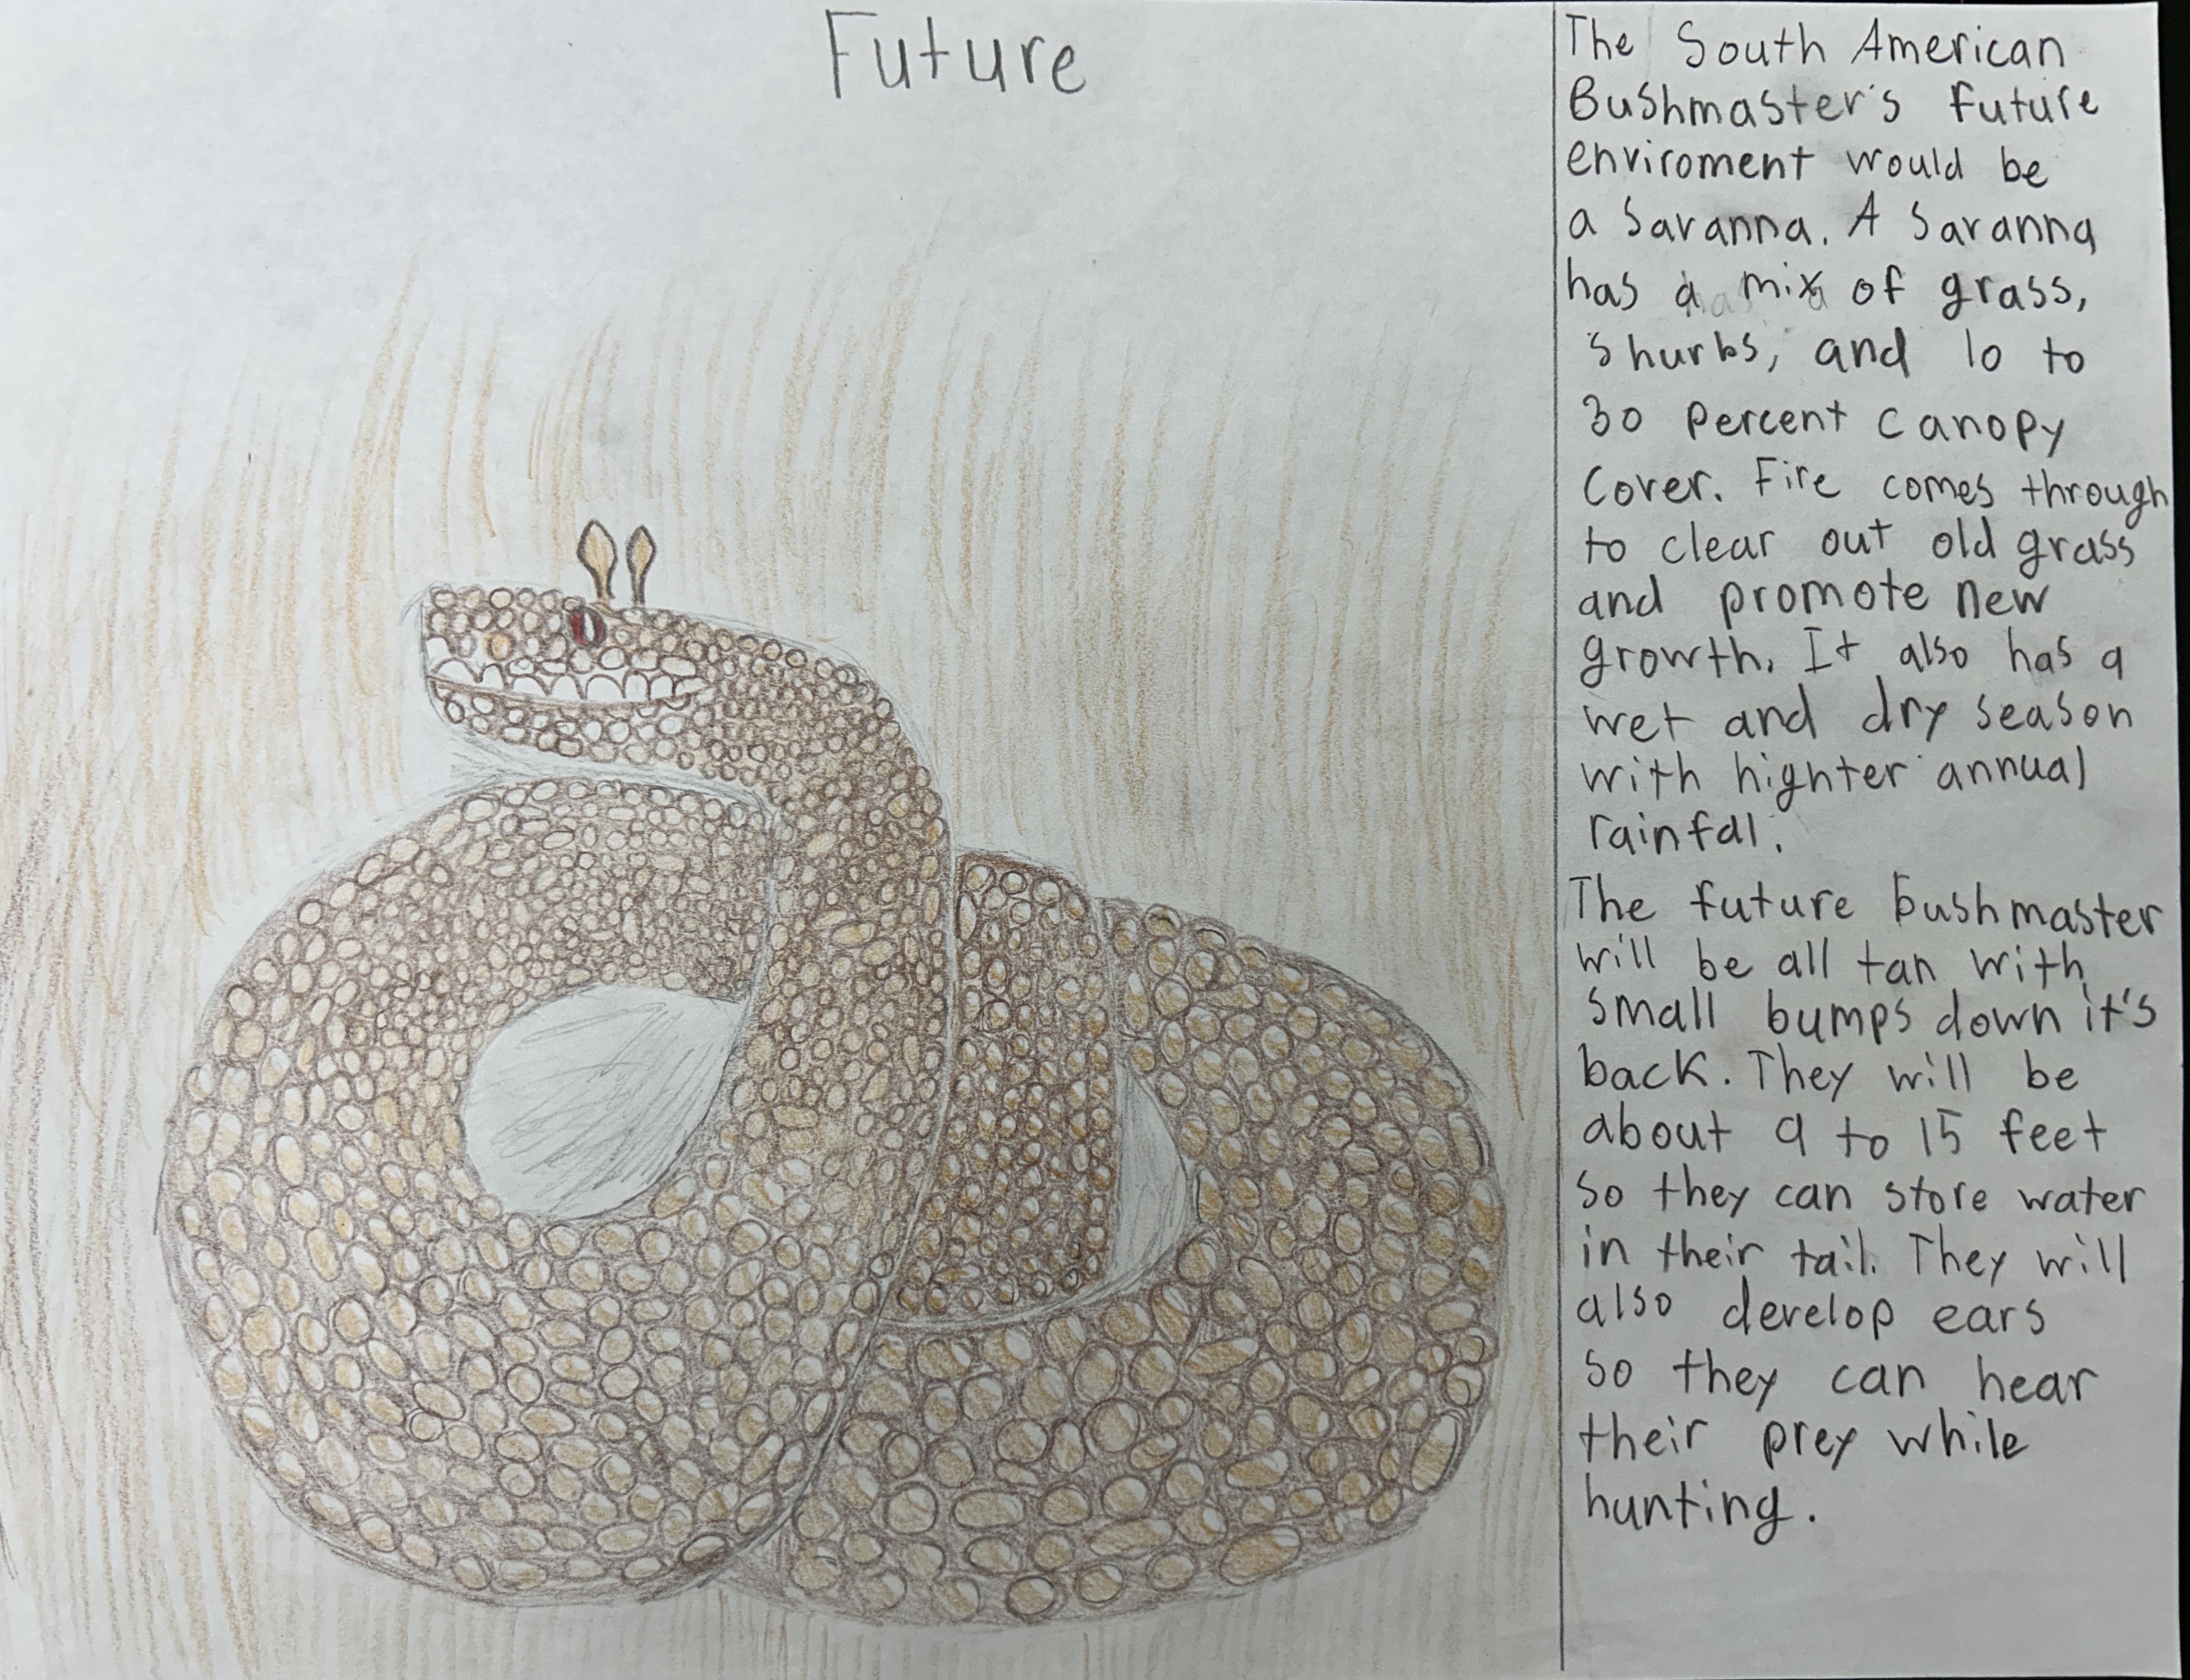 Future
The South American
Bushmaster's future
enviroment would be
a Savanna. A Savanna
has a mix of grass,
shurbs, and 10 to
30 percent canopy
cover. Fire comes through
to clear out old grass
and promote new
growth. It also has a
wet and dry season
with highter annual
rainfal.
The future bushmaster
will be all tan with
small bumps down it's
back. They will be
about 9 to 15 feet
so they can store water
in their tail. They will
also develop ears
so they can hear
their prey while
hunting.